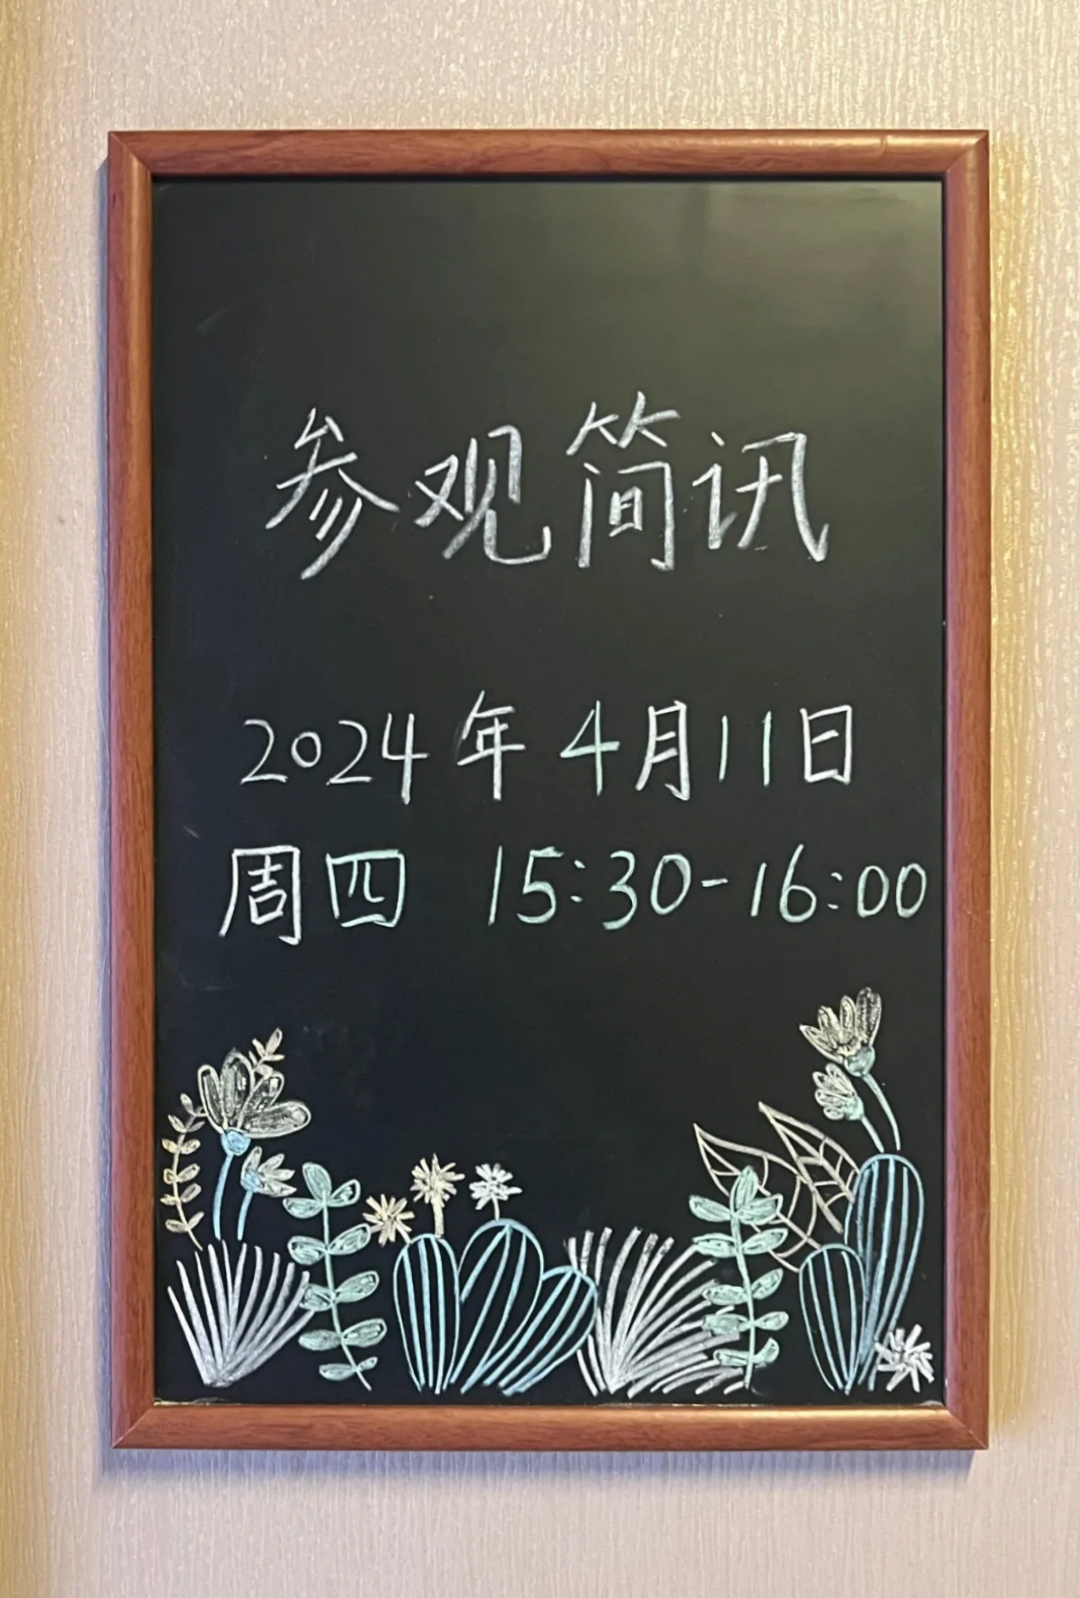 参观简讯
2024年4月11日
周四 15:30-16:00